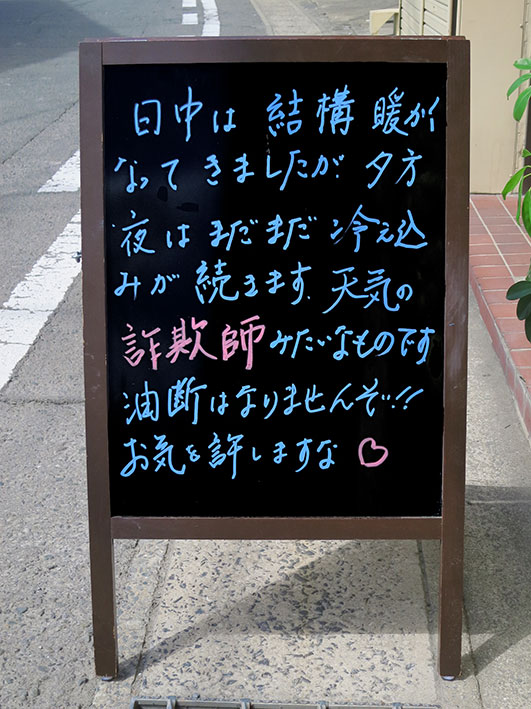 日中は 結構 暖かく
なって きましたが 夕方
夜は まだまだ 冷え込
みが 続きます、天気の
詐欺師みたいなものです
油断はなりませんぞ!!
お気を許しますな♡